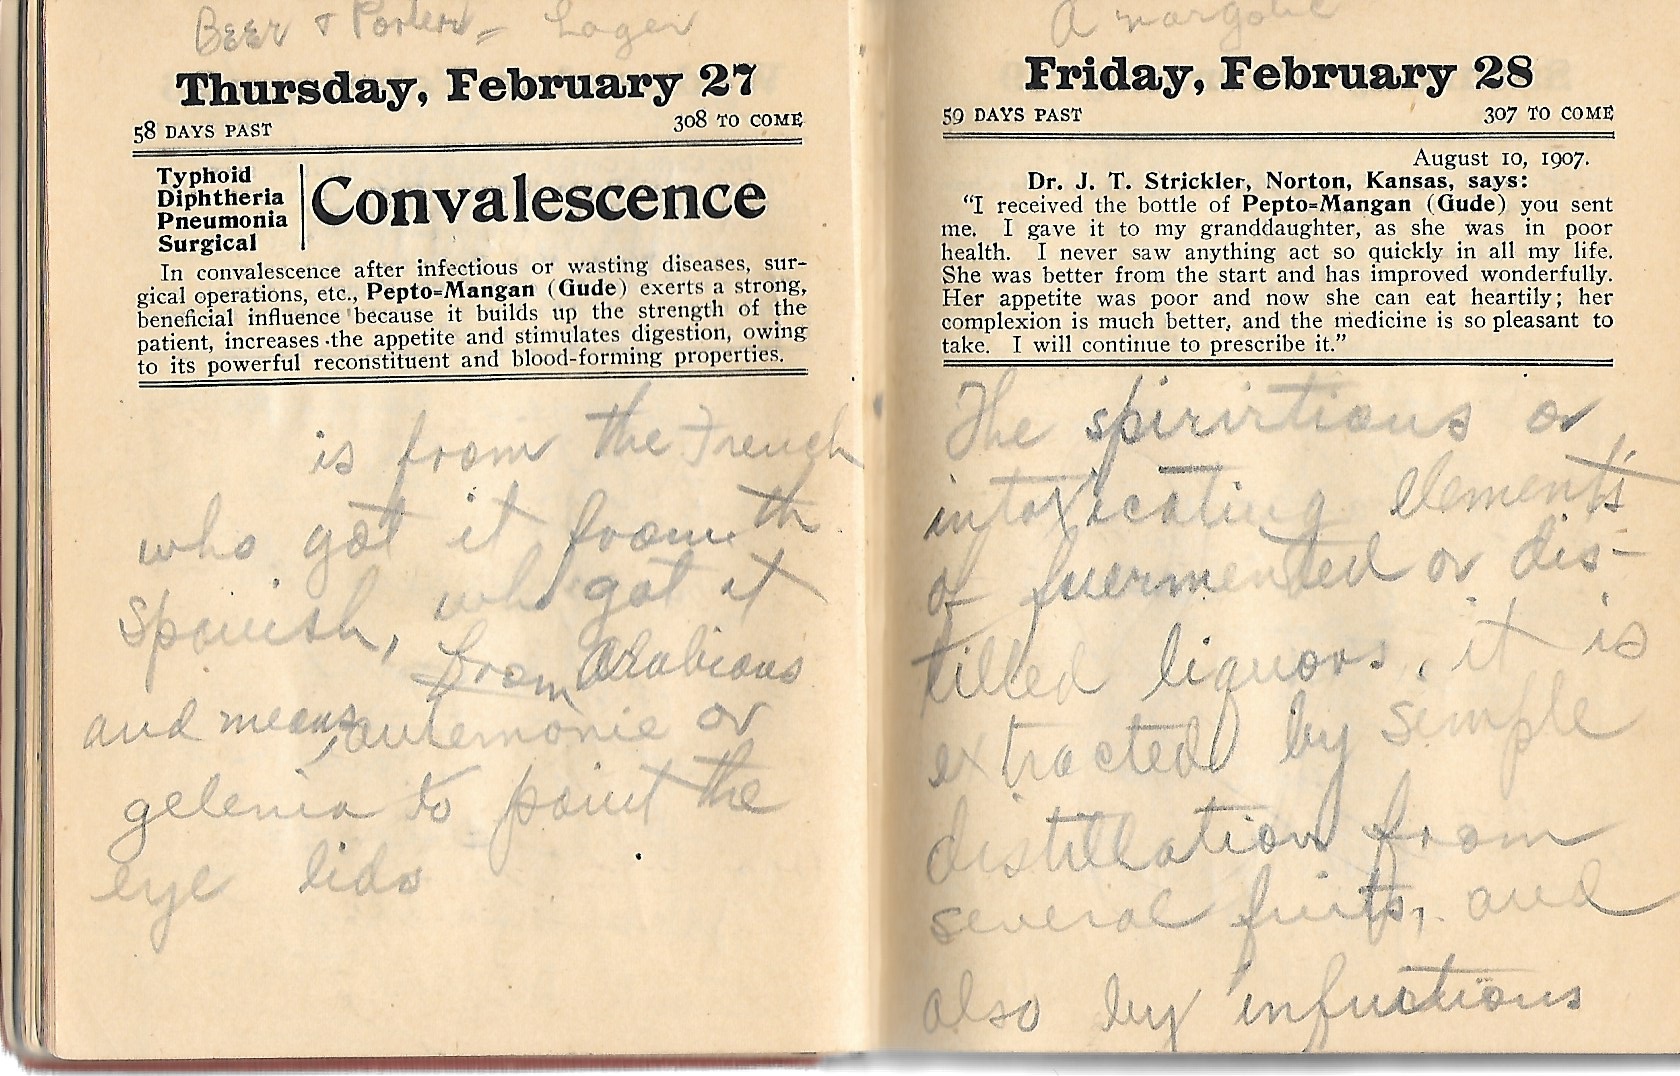 Beer & Porter = Lager
Thursday, February 27
58 DAYS PAST 308 TO COME
Typhoid
Diphtheria
Pneumonia
Surgical
Convalescence
In convalescence after infectious or wasting diseases, sur-
gical operations, etc., Pepto=Mangan (Gude) exerts a strong,
beneficial influence because it builds up the strength of the
patient, increases the appetite and stimulates digestion, owing
to its powerful reconstituent and blood-forming properties.
is from the French
who got it from th
Spanish, who got it
from Arabians
and means, antemonie or
gelenia to paint the
eye lids
A
Friday, February 28
59 DAYS PAST 307 TO COME
August 10, 1907.
Dr. J. T. Strickler, Norton, Kansas, says:
"I received the bottle of Pepto=Mangan (Gude) you sent
me. I gave it to my granddaughter, as she was in poor
health. I never saw anything act so quickly in all my life.
She was better from the start and has improved wonderfully.
Her appetite was poor and now she can eat heartily; her
complexion is much better, and the medicine is so pleasant to
take. I will continue to prescribe it."
The spirirtious or
intoxicating elements
of fuermented or dis-
tilled liquors, it is
extracted by simple
distillation from
several fruits, and
also by infustions